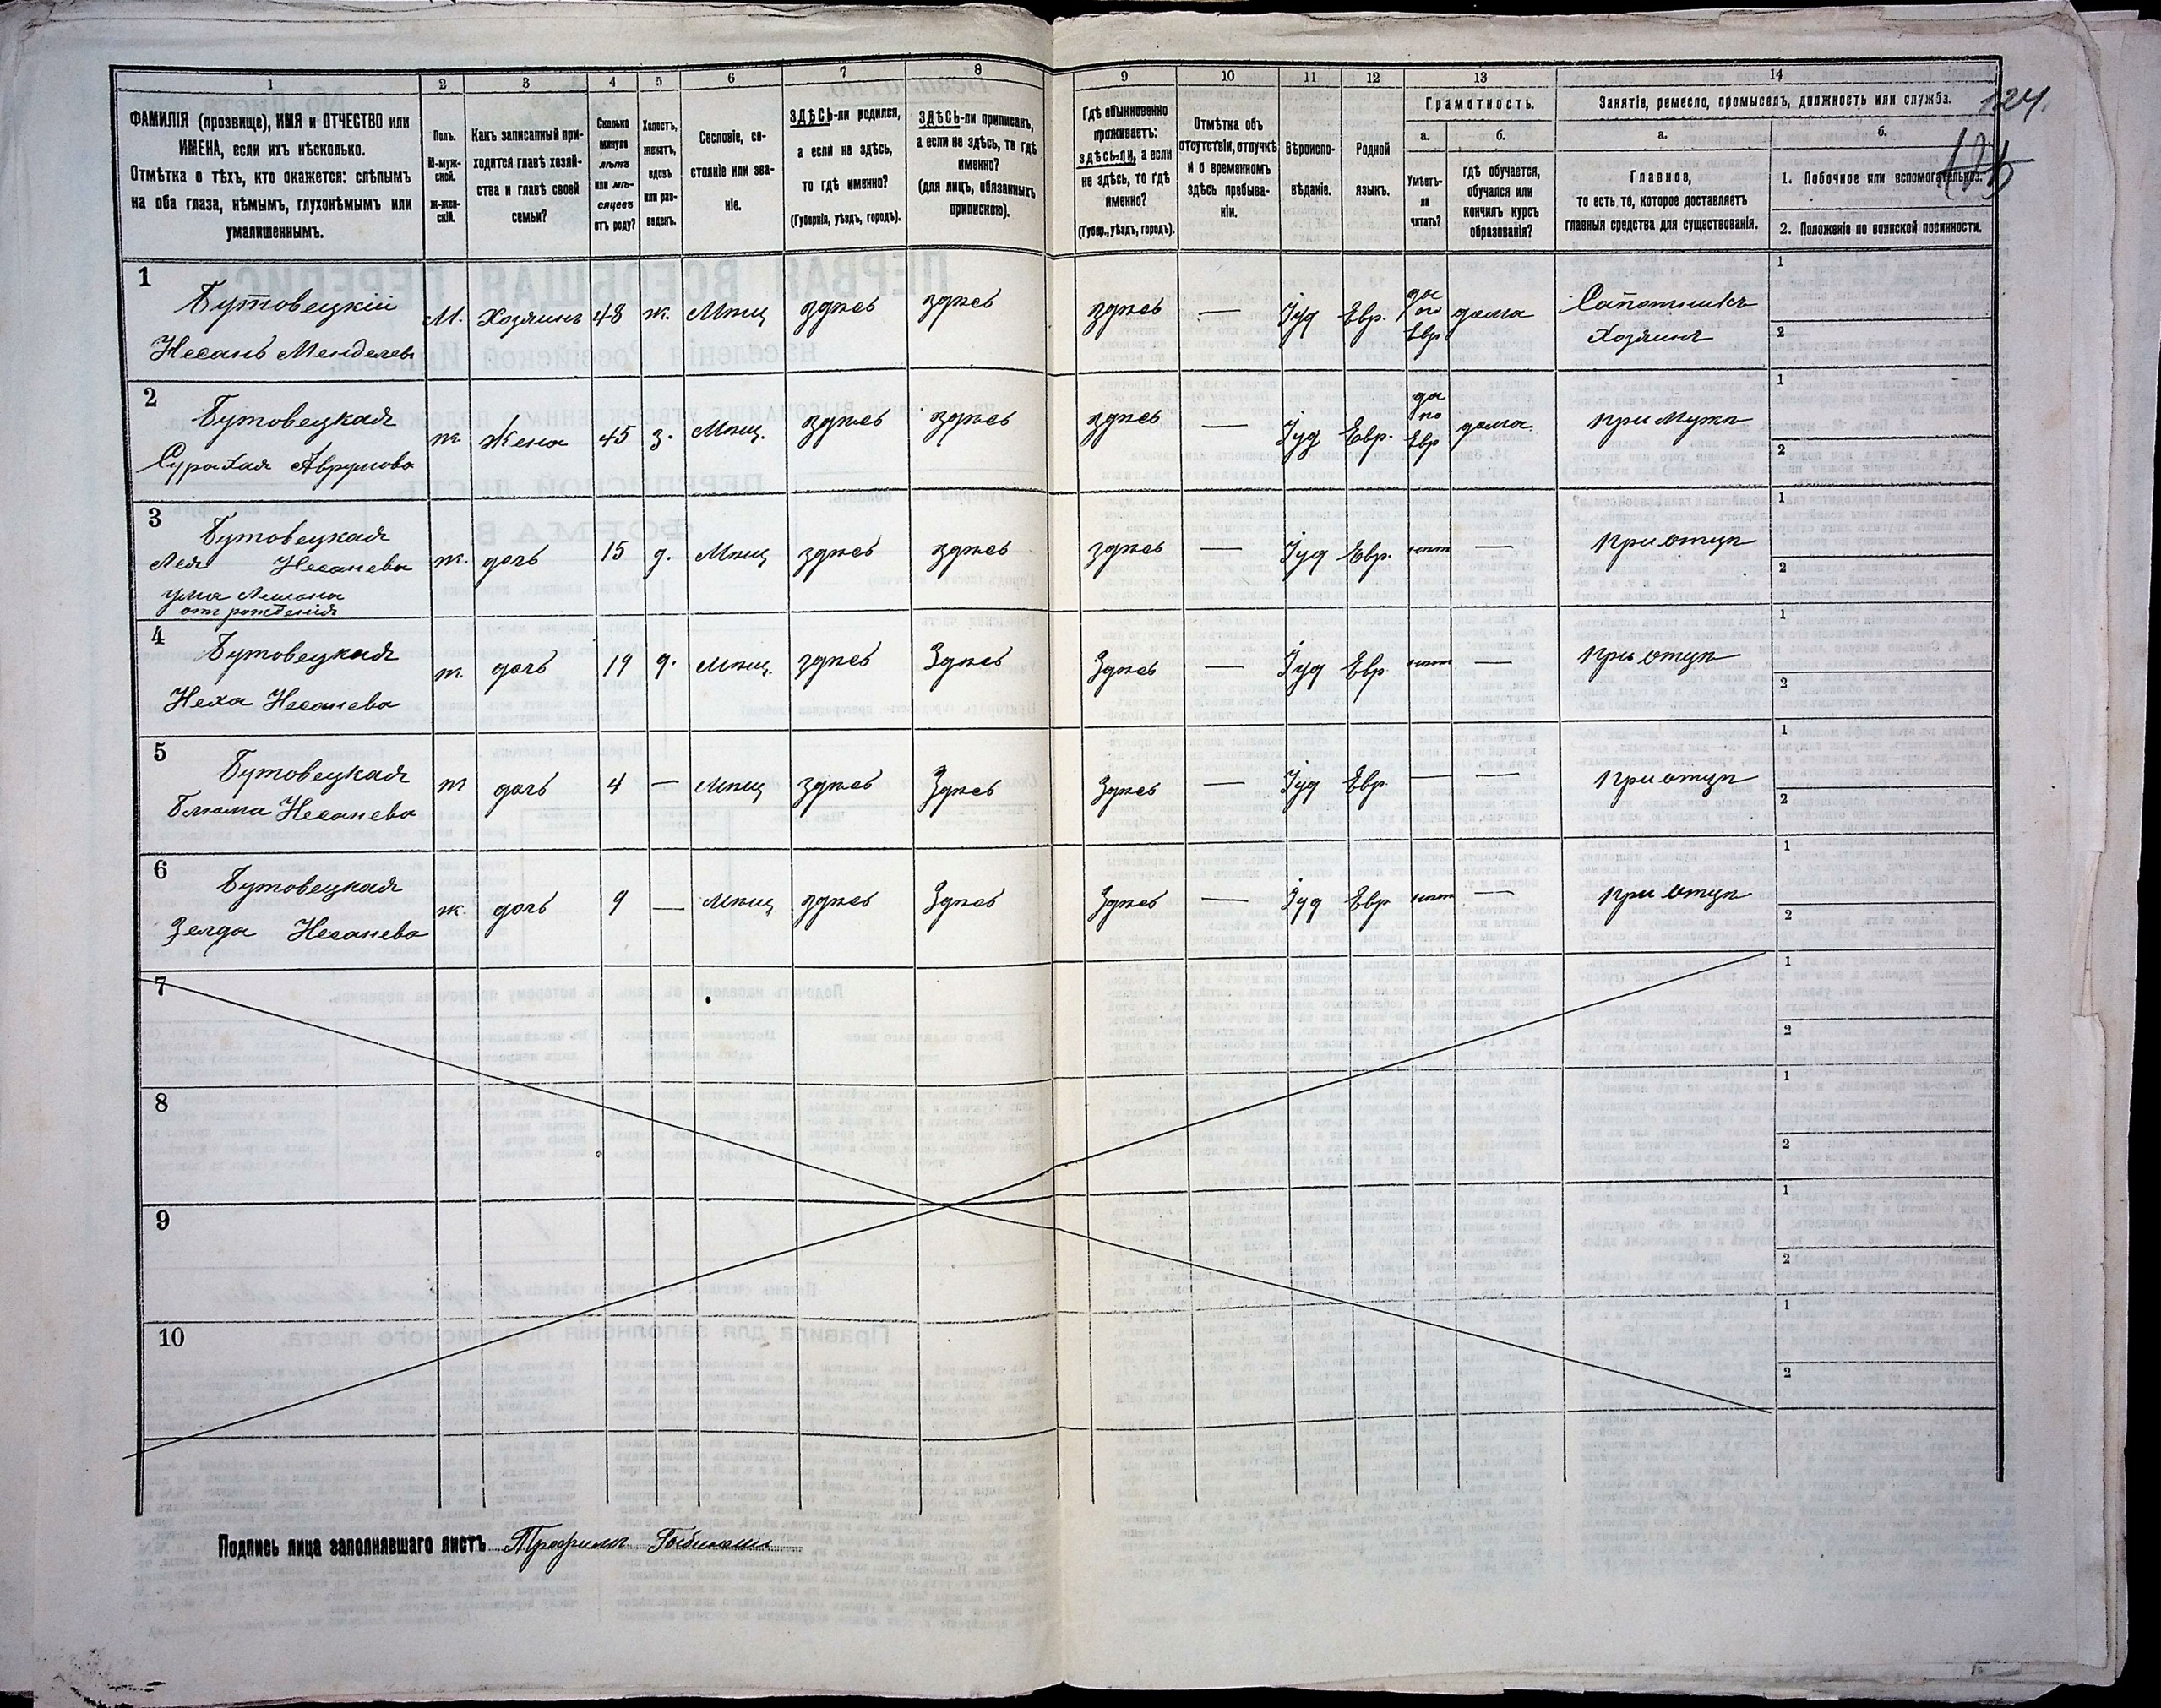 1 2 3 4 5 6 7 8 9 10 11 12 13 14
124.
ФАМИЛІЯ (прозвище), ИМЯ и ОТЧЕСТВО или
ИМЕНА, если ихъ нѣсколько.
Отмѣтка о тѣхъ, кто окажется: слѣпымъ
на оба глаза, нѣмымъ, глухонѣмымъ или
умалишеннымъ.
Полъ.
М-муж-
ской.
Ж-жен-
скій.
Какъ записанный при-
ходится главѣ хозяй-
ства и главѣ своей
семьи?
Сколько
минуло
лѣтъ
или мѣ-
сяцевъ
отъ роду?
Холостъ,
женатъ,
вдовъ
или раз-
веденъ.
Сословіе, со-
стояніе или зва-
ніе.
ЗДѢСЬ-ли родился,
а если не здѣсь,
то гдѣ именно?
(Губернія, уѣздъ, городъ).
ЗДѢСЬ-ли приписанъ,
а если не здѣсь, то гдѣ
именно?
(для лицъ, обязанныхъ
припискою).
Гдѣ обыкновенно
проживаетъ:
здѣсь-ли, а если
не здѣсь, то гдѣ
именно?
(Губер., уѣздъ, городъ).
Отмѣтка объ
отсутствіи, отлучкѣ
и о временномъ
здѣсь пребыва-
ніи.
Вѣроиспо-
вѣданіе.
Родной
языкъ.
Грамотность.
а. б.
Умѣетъ-
ли
читать?
гдѣ обучается,
обучался или
кончилъ курсъ
образованія?
Занятіе, ремесло, промыселъ, должность или служба.
а. б.
Главное,
то есть то, которое доставляетъ
главныя средства для существованія.
1. Побочное или вспомогательное.
2. Положеніе по воинской повинности.
1
Бутовецкій
Несанъ Менделевъ
М. Хозяинъ 48 ж. Мѣщ здѣсь здѣсь здѣсь — Іуд Евр. да по Евр дома Сапожникъ
Хозяинъ
1
2
2
Бутовецкая
Сурахая Аврумова
ж. Жена 45 з. Мѣщ. здѣсь здѣсь здѣсь — Іуд Евр. да по Евр дома при Мужѣ
1
2
3
Бутовецкая
Лея Несанева
ума лешона
отъ рожденія
ж. дочь 15 д. Мѣщ здѣсь здѣсь здѣсь — Іуд Евр. нѣтъ — при отцѣ
1
2
4
Бутовецкая
Неха Несанева
ж. дочь 19 д. Мѣщ. здѣсь Здѣсь Здѣсь — Іуд Евр. нѣтъ — при отцѣ
1
2
5
Бутовецкая
Блюма Несанева
ж дочь 4 — Мѣщ здѣсь Здѣсь Здѣсь — Іуд Евр. — — при отцѣ
1
2
6
Бутовецкая
Зелда Несанева
ж. дочь 9 — Мѣщ здѣсь Здѣсь Здѣсь — Іуд Евр нѣтъ — при отцѣ
1
2
7
1
2
8
1
2
9
1
2
10
1
2
Подпись лица заполнявшаго листъ